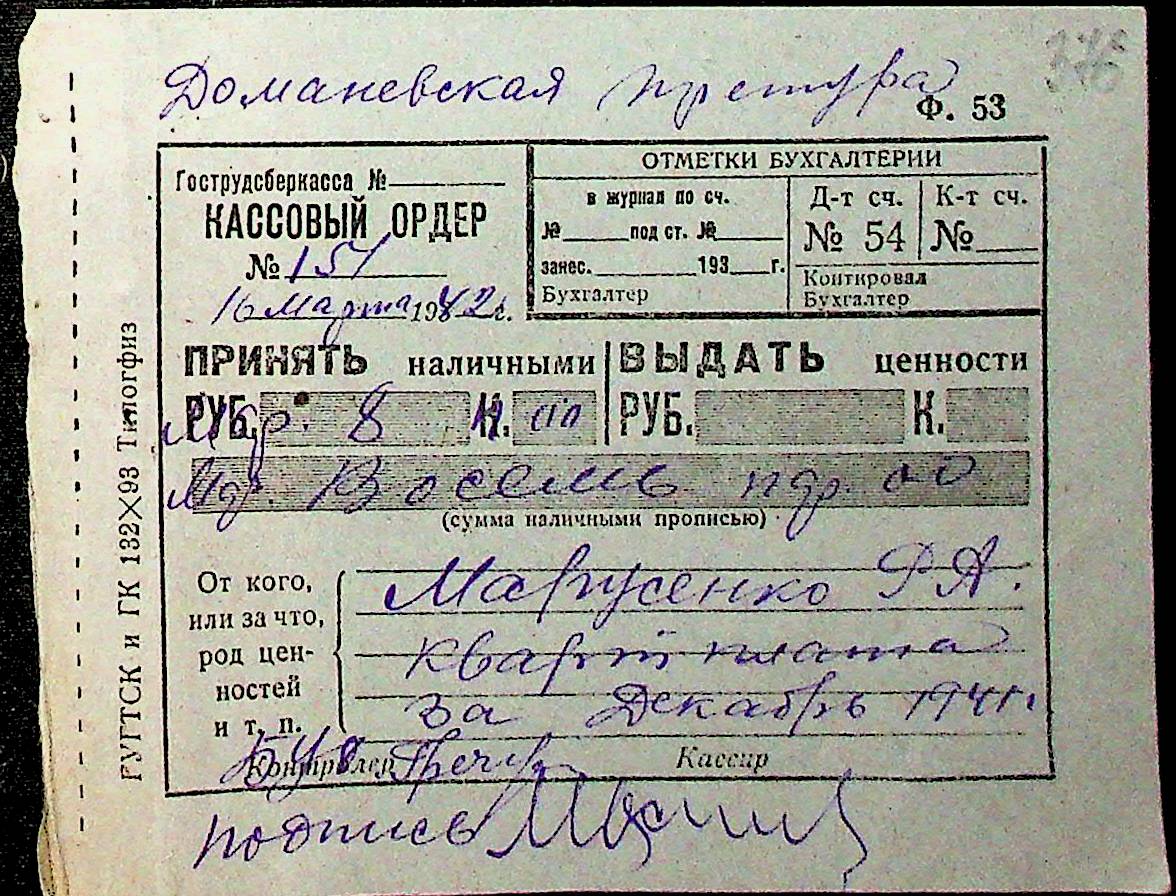 Доманевская претура
Ф. 53
376
Гострудсберкасса №
КАССОВЫЙ ОРДЕР
№ 151
16 Марта 1942 г.
ОТМЕТКИ БУХГАЛТЕРИИ
в журнал по сч.
№ под ст. №
занес. 193 г.
Бухгалтер
Д-т сч.
№ 54
К-т сч.
№
Контировал
Бухгалтер
ПРИНЯТЬ наличными
РУБ. 8 К. 00
ВЫДАТЬ ценности
РУБ. К.
Мдр. Восемь пдр. 00
(сумма наличными прописью)
От кого,
или за что,
род цен-
ностей
и т. п.
Марусенко Р. А.
кварт плата
за Декабрь 1941 г.
Контролер
Кассир
подпись
ГУГТСК и ГК 132×93 Типогфиз